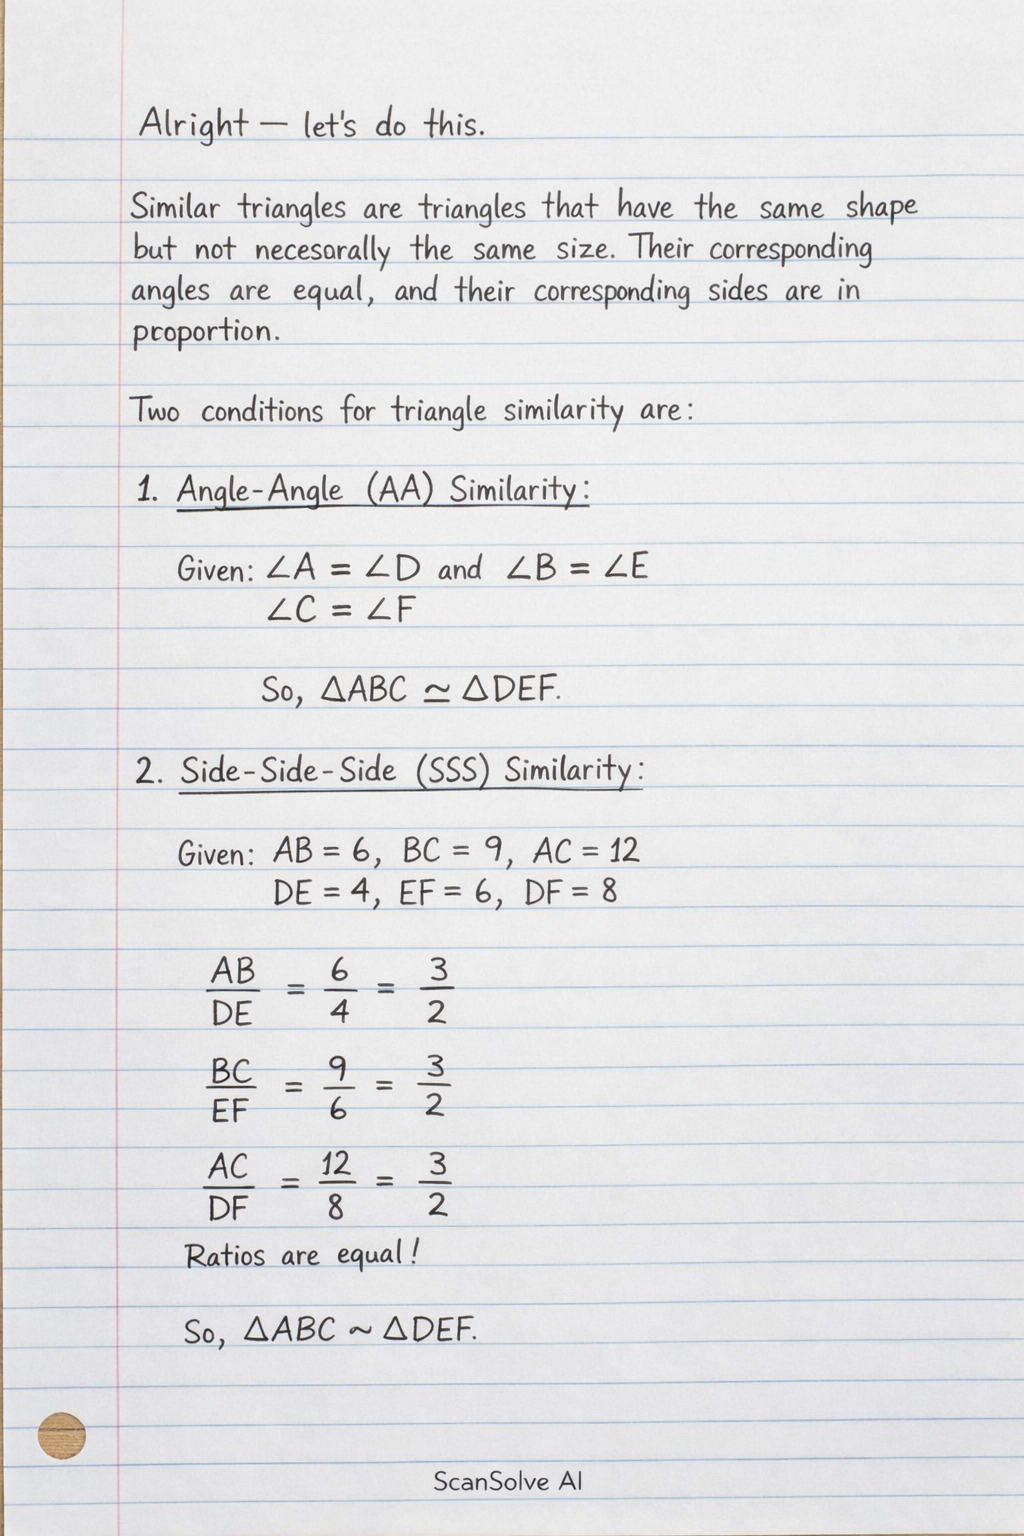 Alright — let's do this.
Similar triangles are triangles that have the same shape
but not necesorally the same size. Their corresponding
angles are equal, and their corresponding sides are in
proportion.
Two conditions for triangle similarity are:
1. Angle-Angle (AA) Similarity:
Given: ∠A = ∠D and ∠B = ∠E
∠C = ∠F
So, △ABC ≃ △DEF.
2. Side-Side-Side (SSS) Similarity:
Given: AB = 6, BC = 9, AC = 12
DE = 4, EF = 6, DF = 8
AB/DE = 6/4 = 3/2
BC/EF = 9/6 = 3/2
AC/DF = 12/8 = 3/2
Ratios are equal!
So, △ABC ~ △DEF.
ScanSolve AI